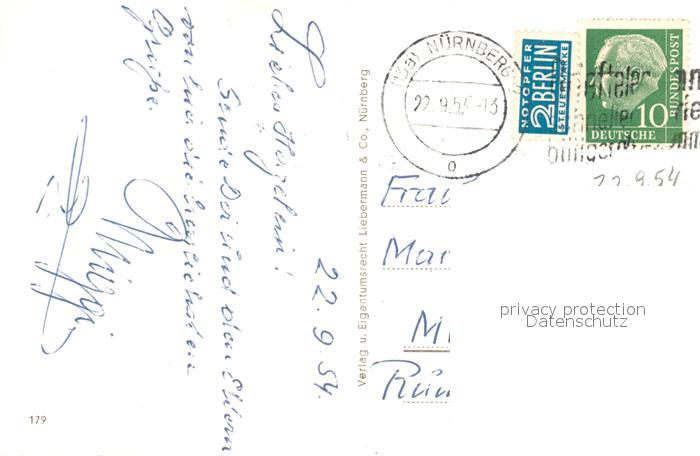 22.9.54.
Liebes Herzelein!
Sende Dir und den Eltern
von hier die herzlichsten
Grüße.
179
Verlag u. Eigentumsrecht Liebermann & Co., Nürnberg
NÜRNBERG
22.9.54-13
o
NOTOPFER
2 BERLIN
STEUERMARKE
BUNDESPOST
10
DEUTSCHE
22.9.54
Frau
Mar
M
Rün
privacy protection
Datenschutz